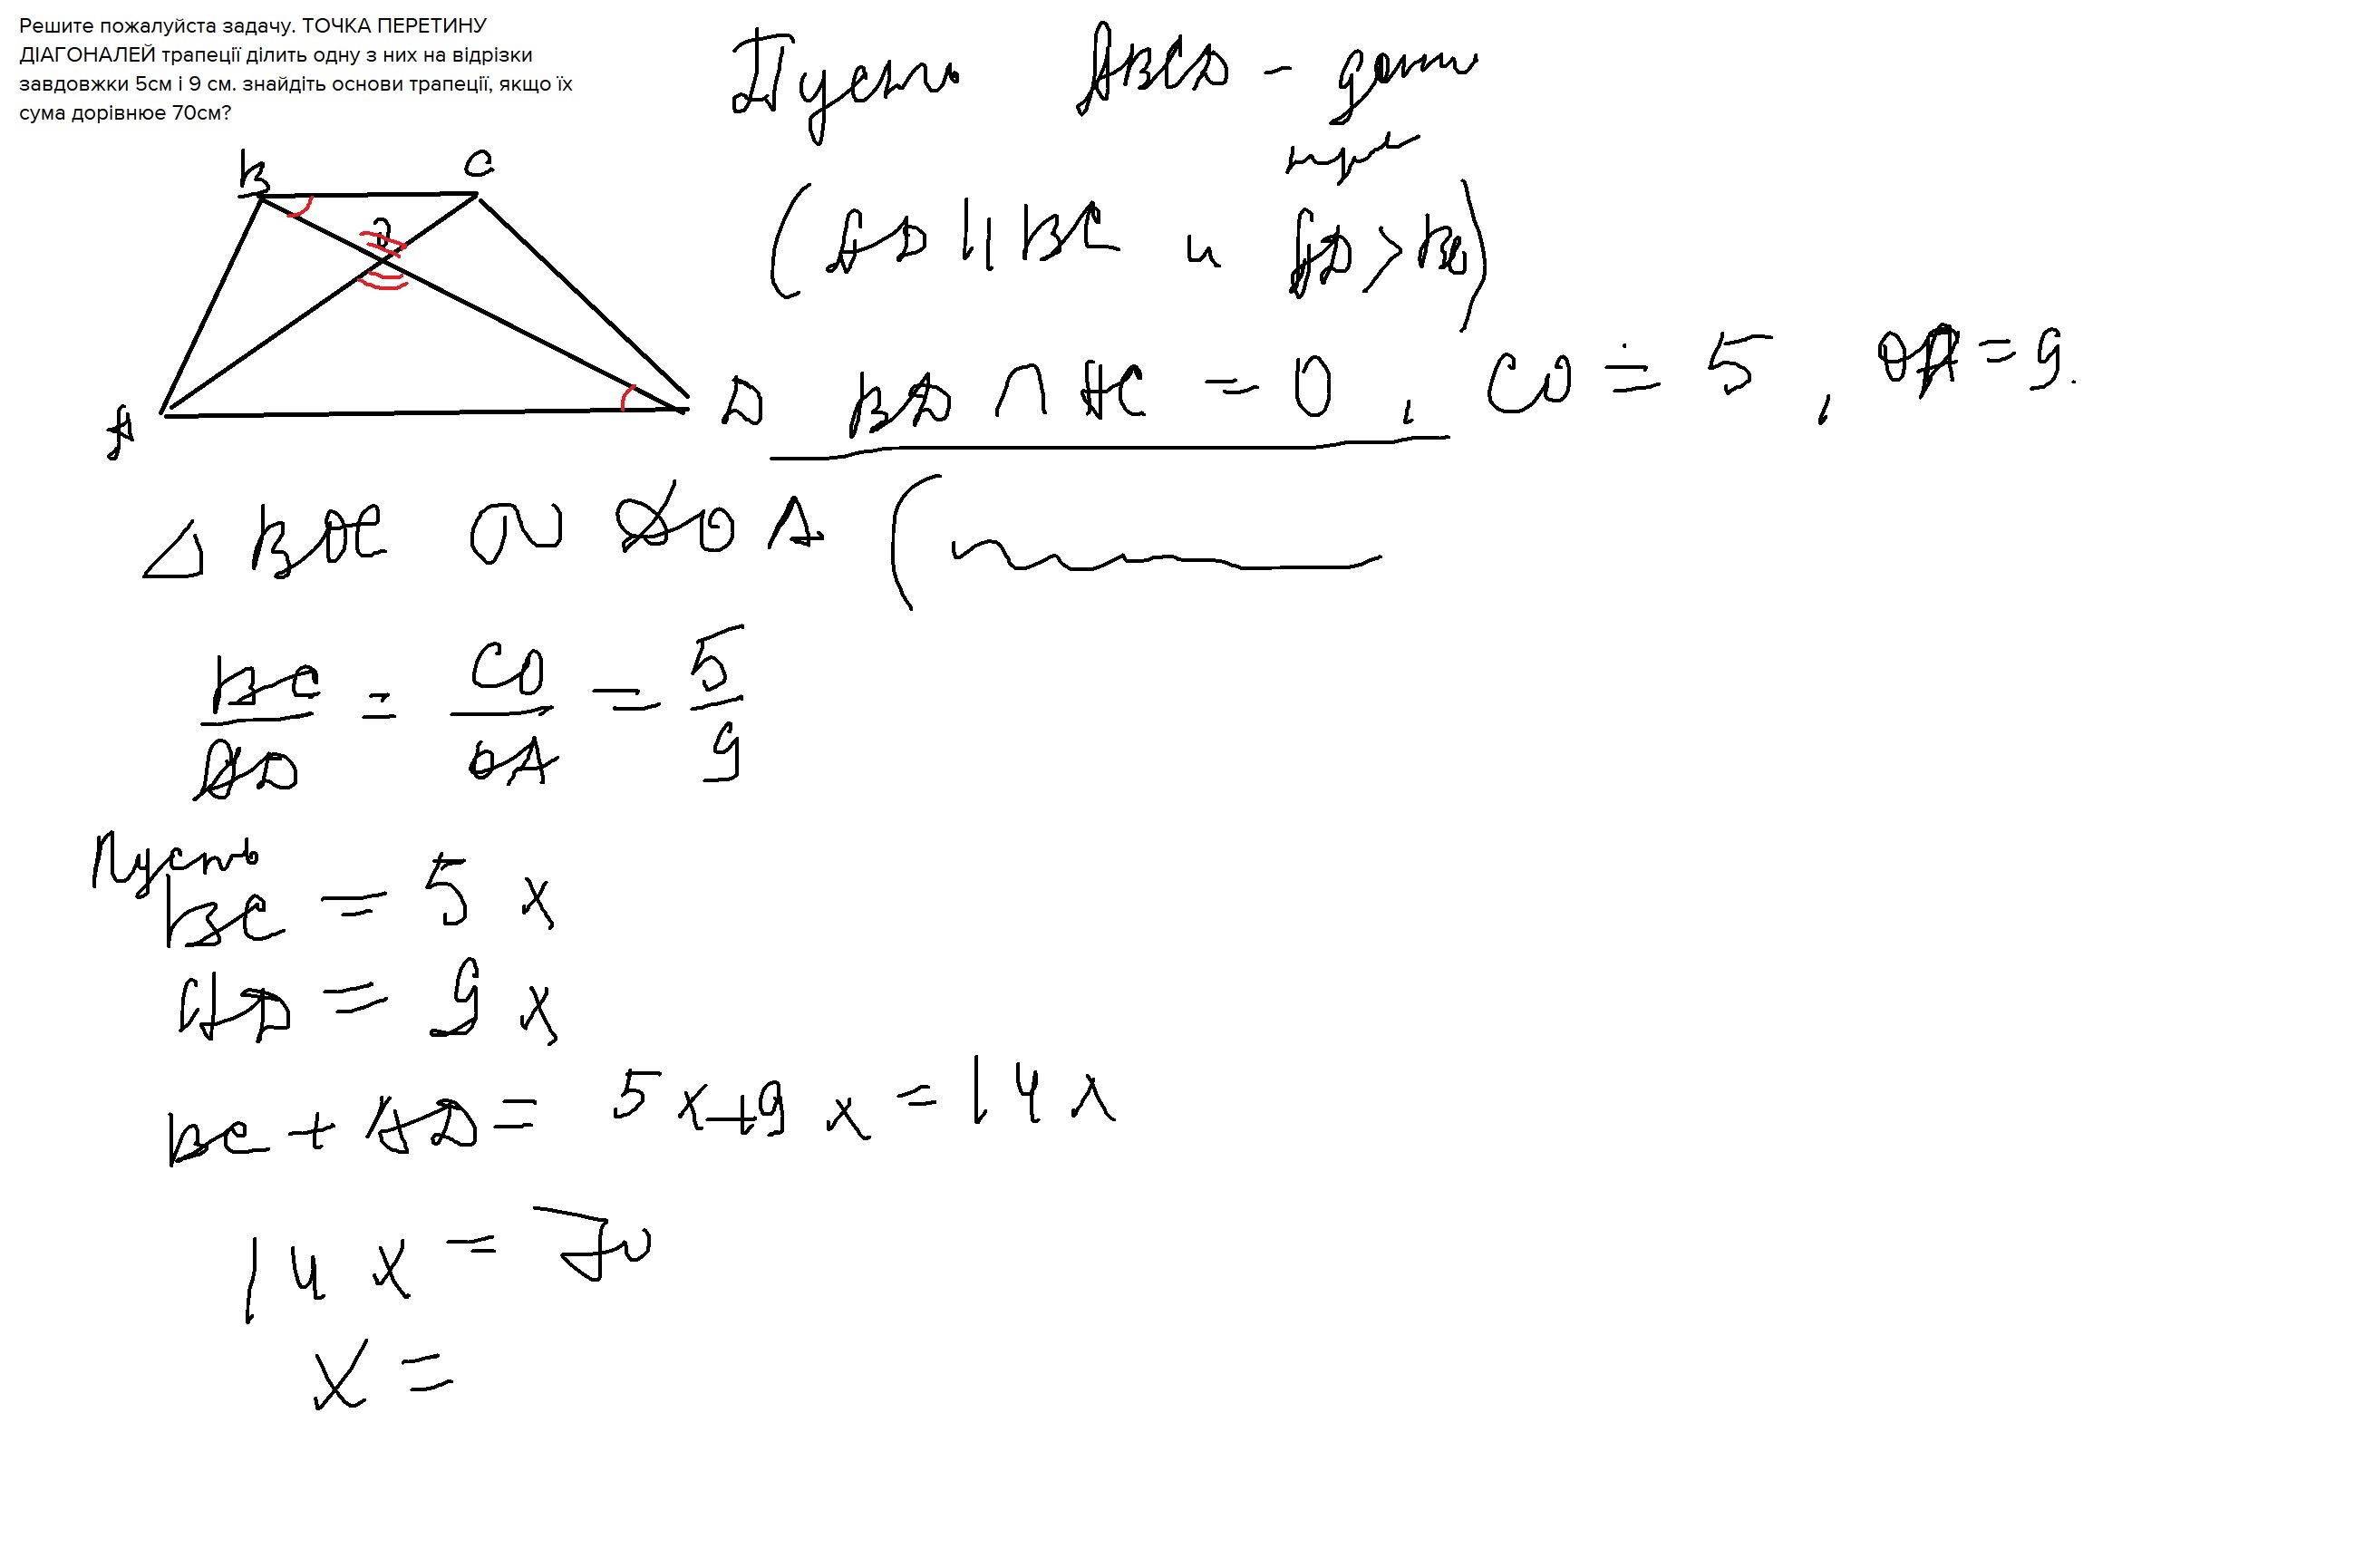 Решите пожалуйста задачу. ТОЧКА ПЕРЕТИНУ
ДІАГОНАЛЕЙ трапеції ділить одну з них на відрізки
завдовжки 5см і 9 см. знайдіть основи трапеції, якщо їх
сума дорівнює 70см?
B C
O
A D
Пусть ABCD -
(AD || BC и AD > BC)
BD ∩ AC = O, CO = 5, OA = 9.
△ BOC ∾ DOA (
BC/AD = CO/OA = 5/9
Пусть
BC = 5x
AD = 9x
BC + AD = 5x+9x = 14x
14x = 70
x =